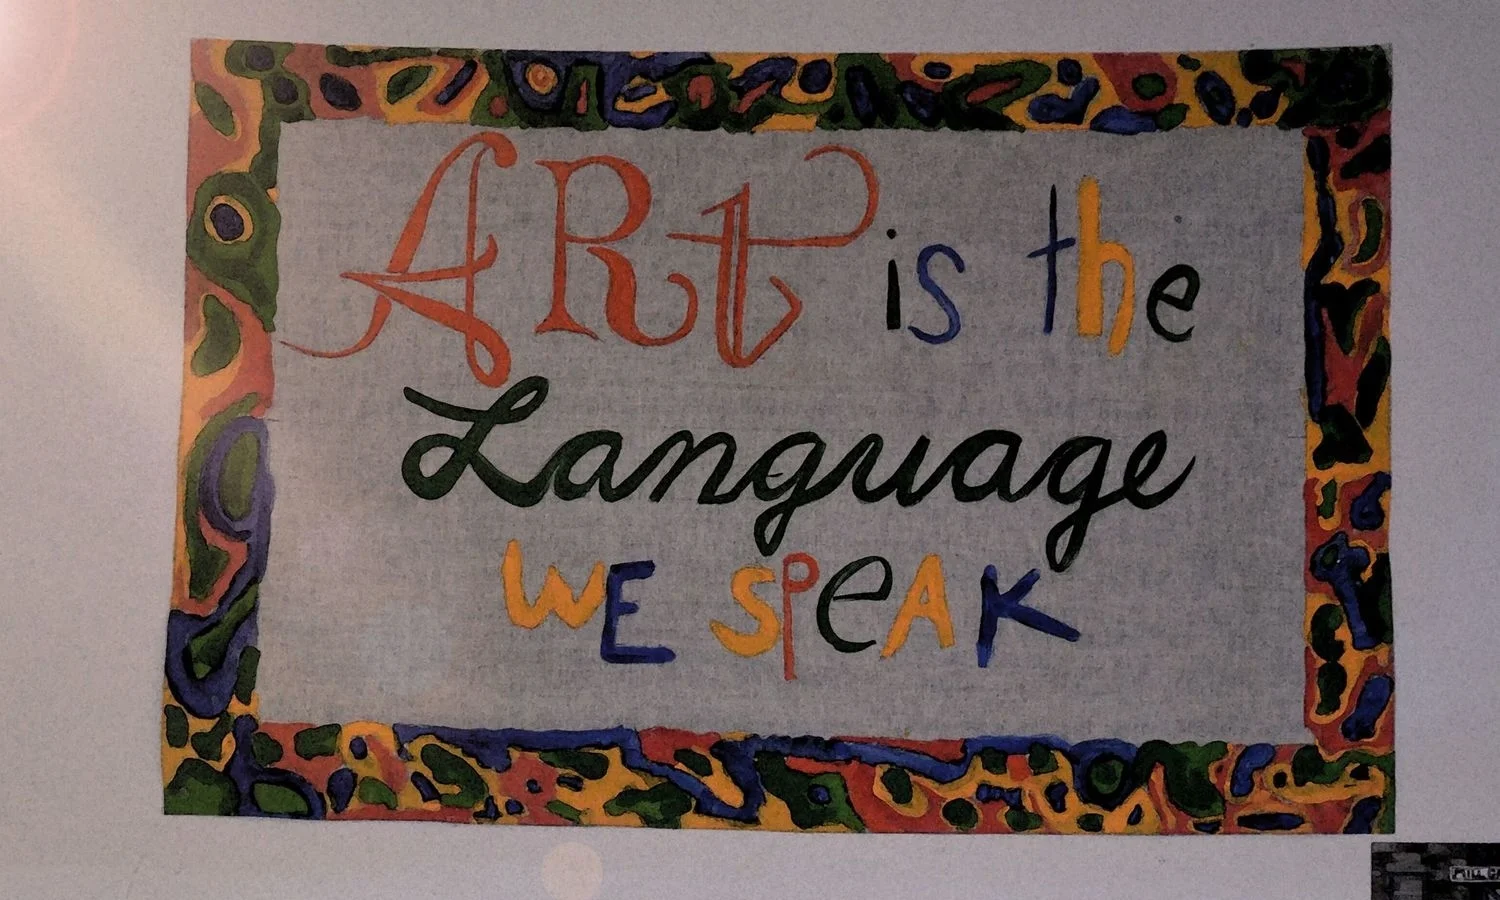 ARt is the
Language
WE SPeAK